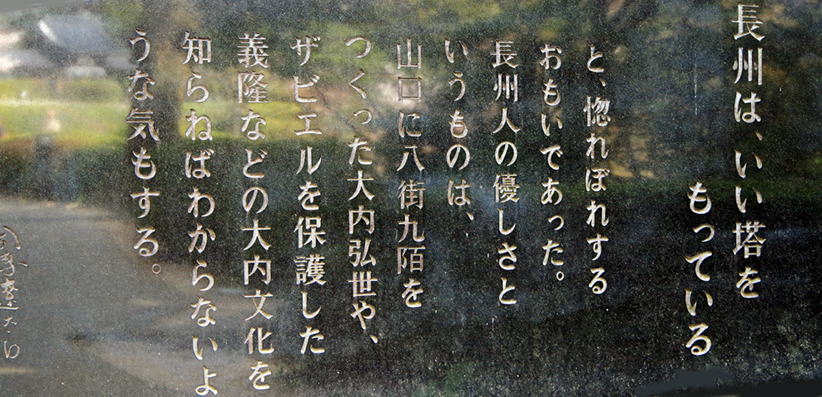 長州は、いい塔を
もっている
と、惚れぼれする
おもいであった。
長州人の優しさと
いうものは、
山口に八街九陌を
つくった大内弘世や、
ザビエルを保護した
義隆などの大内文化を
知らねばわからないよ
うな気もする。
司馬遼太郎